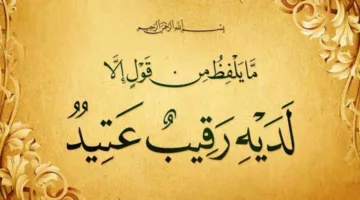 بسم الله الرحمن الرحيم
مَا يَلْفِظُ مِن قَوْلٍ إِلَّا
لَدَيْهِ رَقِيبٌ عَتِيدٌ